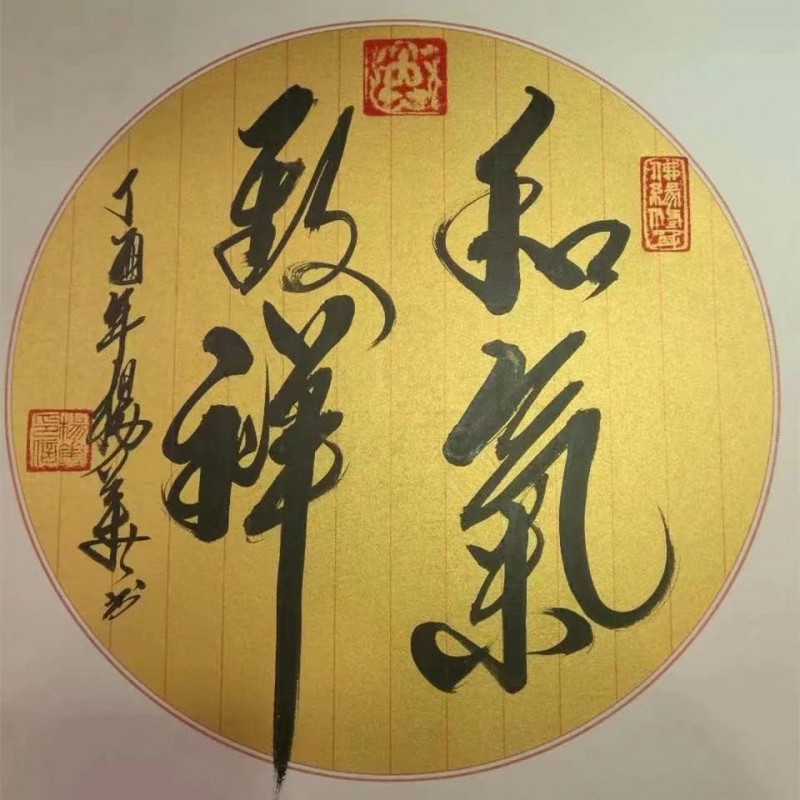 和氣
致祥
丁酉年楊華書